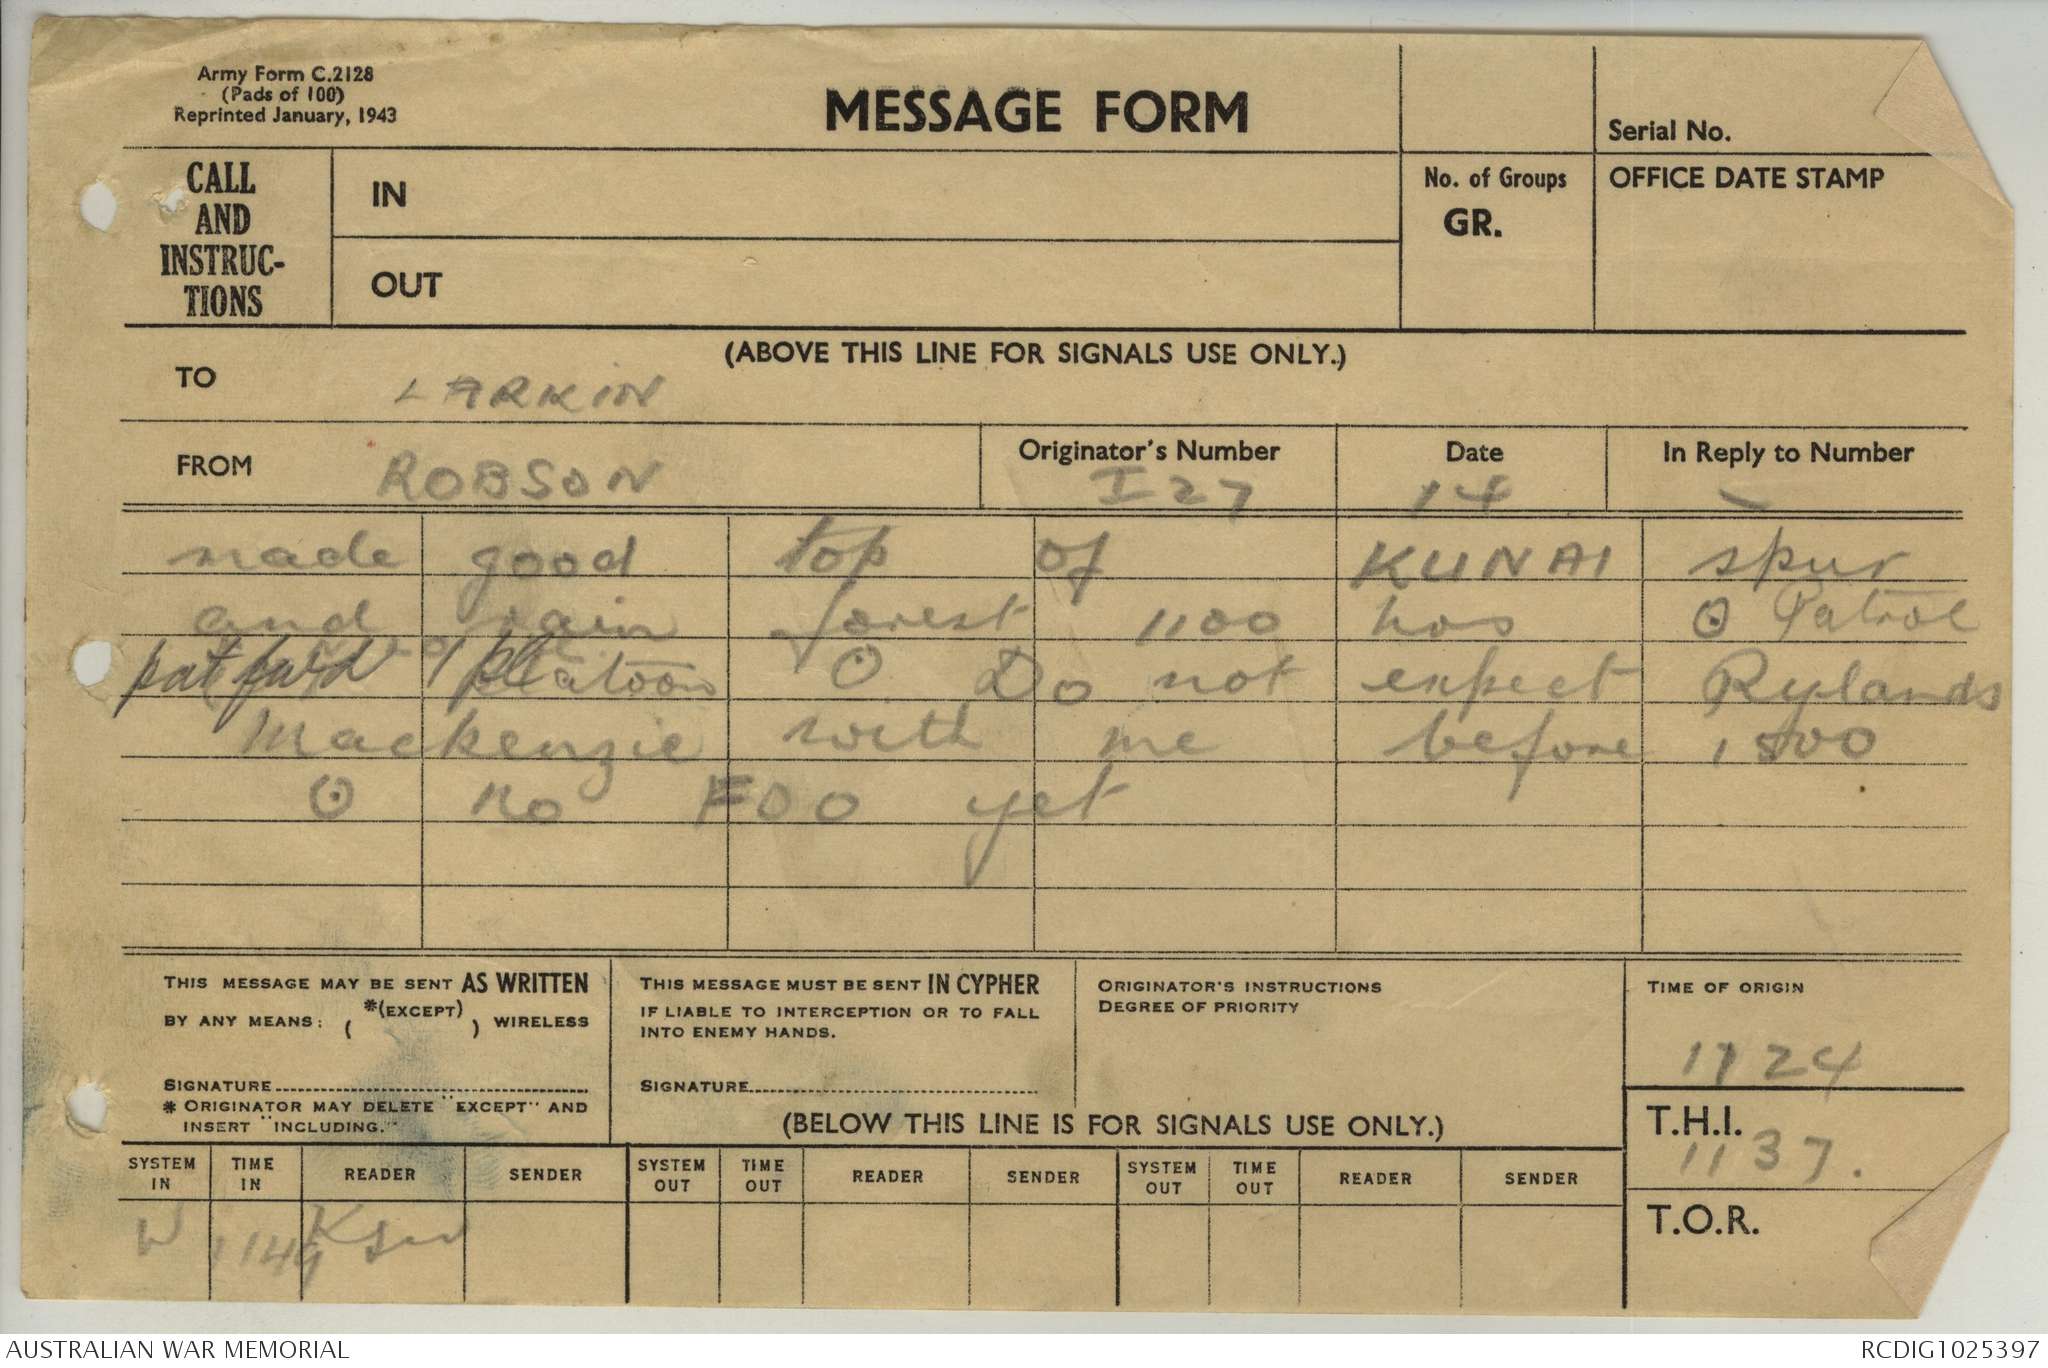 Army Form C.2128
(Pads of 100)
Reprinted January, 1943
MESSAGE FORM
Serial No.
CALL AND INSTRUC-TIONS
IN
No. of Groups
GR.
OFFICE DATE STAMP
OUT
(ABOVE THIS LINE FOR SIGNALS USE ONLY.)
TO LARKIN
FROM ROBSON
Originator's Number I27
Date 14
In Reply to Number -
made good top of KUNAI spur
and rain forest 1100 hrs O Patrol
pat fwd 1 pl platoon O Do not expect Rylands
Mackenzie with me before 1500
O no FOO yet
THIS MESSAGE MAY BE SENT AS WRITTEN
BY ANY MEANS: ( *(EXCEPT) ) WIRELESS
SIGNATURE
* ORIGINATOR MAY DELETE "EXCEPT" AND
INSERT "INCLUDING."
THIS MESSAGE MUST BE SENT IN CYPHER
IF LIABLE TO INTERCEPTION OR TO FALL
INTO ENEMY HANDS.
SIGNATURE
ORIGINATOR'S INSTRUCTIONS
DEGREE OF PRIORITY
TIME OF ORIGIN
1124
(BELOW THIS LINE IS FOR SIGNALS USE ONLY.)
T.H.I.
1137.
T.O.R.
SYSTEM IN TIME IN READER SENDER SYSTEM OUT TIME OUT READER SENDER SYSTEM OUT TIME OUT READER SENDER
W 1149
AUSTRALIAN WAR MEMORIAL
RCDIG1025397